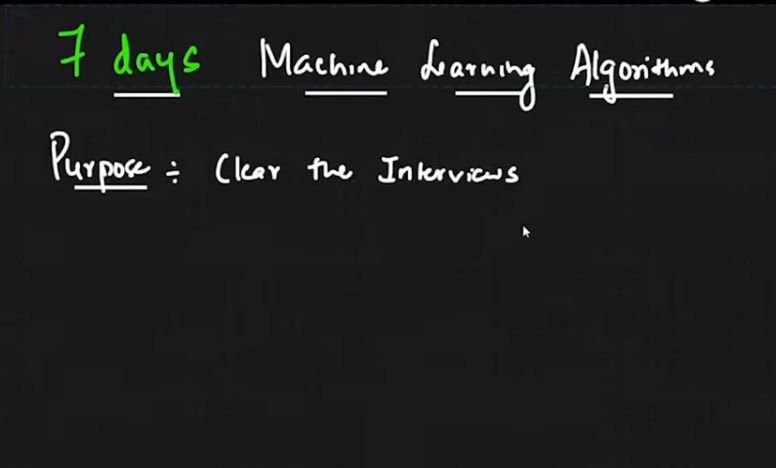 7 days Machine Learning Algorithms
Purpose ÷ Clear the Interviews